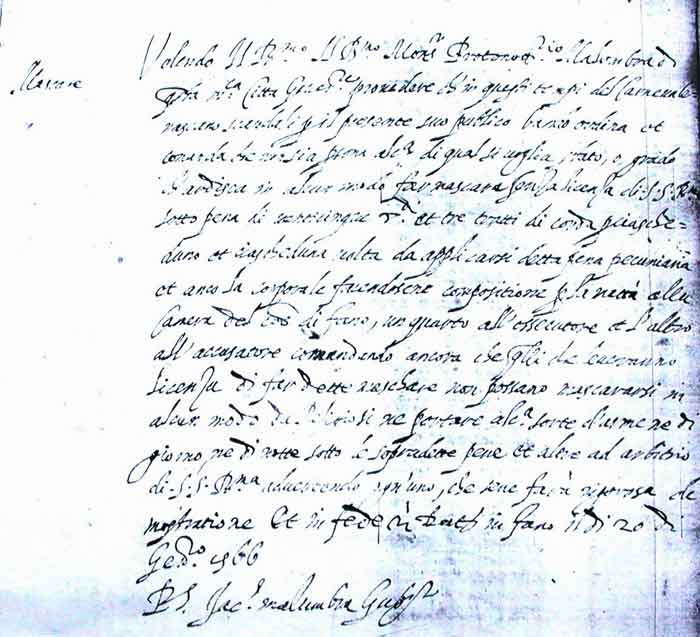 Mascare
Volendo Il R.mo Il R.mo Mons.r Protonot.rio Malombra
Città Gover.re provedere ch in questi tempi del Carnevale
nascano scandali p il presente suo publico bando ordina et
comanda che non sia p̱sona alc.a di qual si voglia stato, o, grado
ch ardisca in alcun modo far mascara senza licenza di S. S. R.ma
sotto pena di venticinque et tre tratti di corda p ciasche=
duno et ciascheduna volta da applicarsi detta pena pecuniaria
et anco la corporale facendosene compositione p la metà alla
Camera del di fano, un quarto all'essecutore et l'altro
all'accusatore comandando ancora che q̱lli ch haveranno
licenza di far dette maschare non possano mascararsi in
alcun modo da Religiosi ne portare alc.a sorte d'arme ne di
giorno, ne di notte sotto le sopradette pene et altre ad arbitrio
di S. S. R.ma advertendo ogn'uno, che sene farà rigorosa de
mostratione Et in fede Dat in fano il dì 20 di
Gen.ro 1566
Jac.s malumbra Gub.r